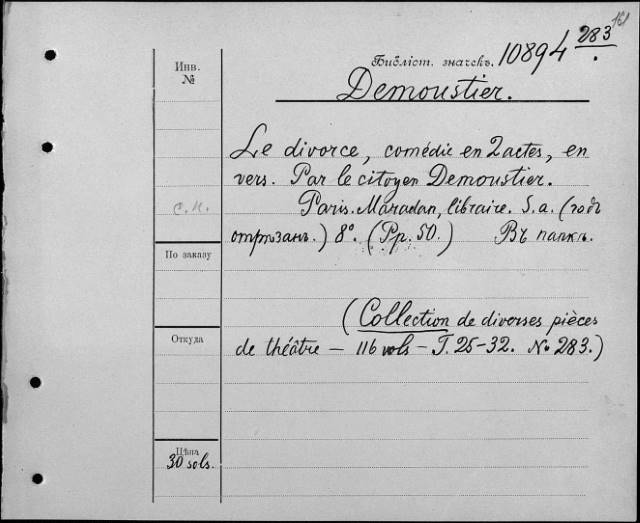 161
Инв.
№
Библіот. значекъ. 10894 283
Demoustier.
Le divorce, comédie en 2 actes, en
vers. Par le citoyen Demoustier.
Paris. Maradan, libraire. S. a. (годъ
отрѣзанъ.) 8°. (Pp. 50.) Въ папкѣ.
с.н.
По заказу
(Collection de diverses pièces
de théâtre — 116 vols — T. 25-32. № 283.)
Откуда
Цѣна
30 sols.